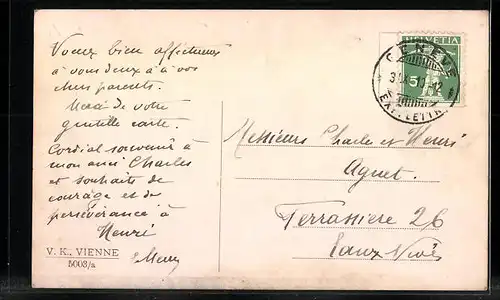 Voeux bien affectueux
à vous deux à à vos
chers parents.
Merci de votre
gentille carte.
Cordial souvenir à
mon ami Charles
et souhaits de
courage et de
persévérance à
Henri
V. K., VIENNE
5003/a
HELVETIA
GENÈVE
EXP. LETTR.
Messieurs Charles et Henri
Aguet.
Terrassiere 26
Eaux Vives